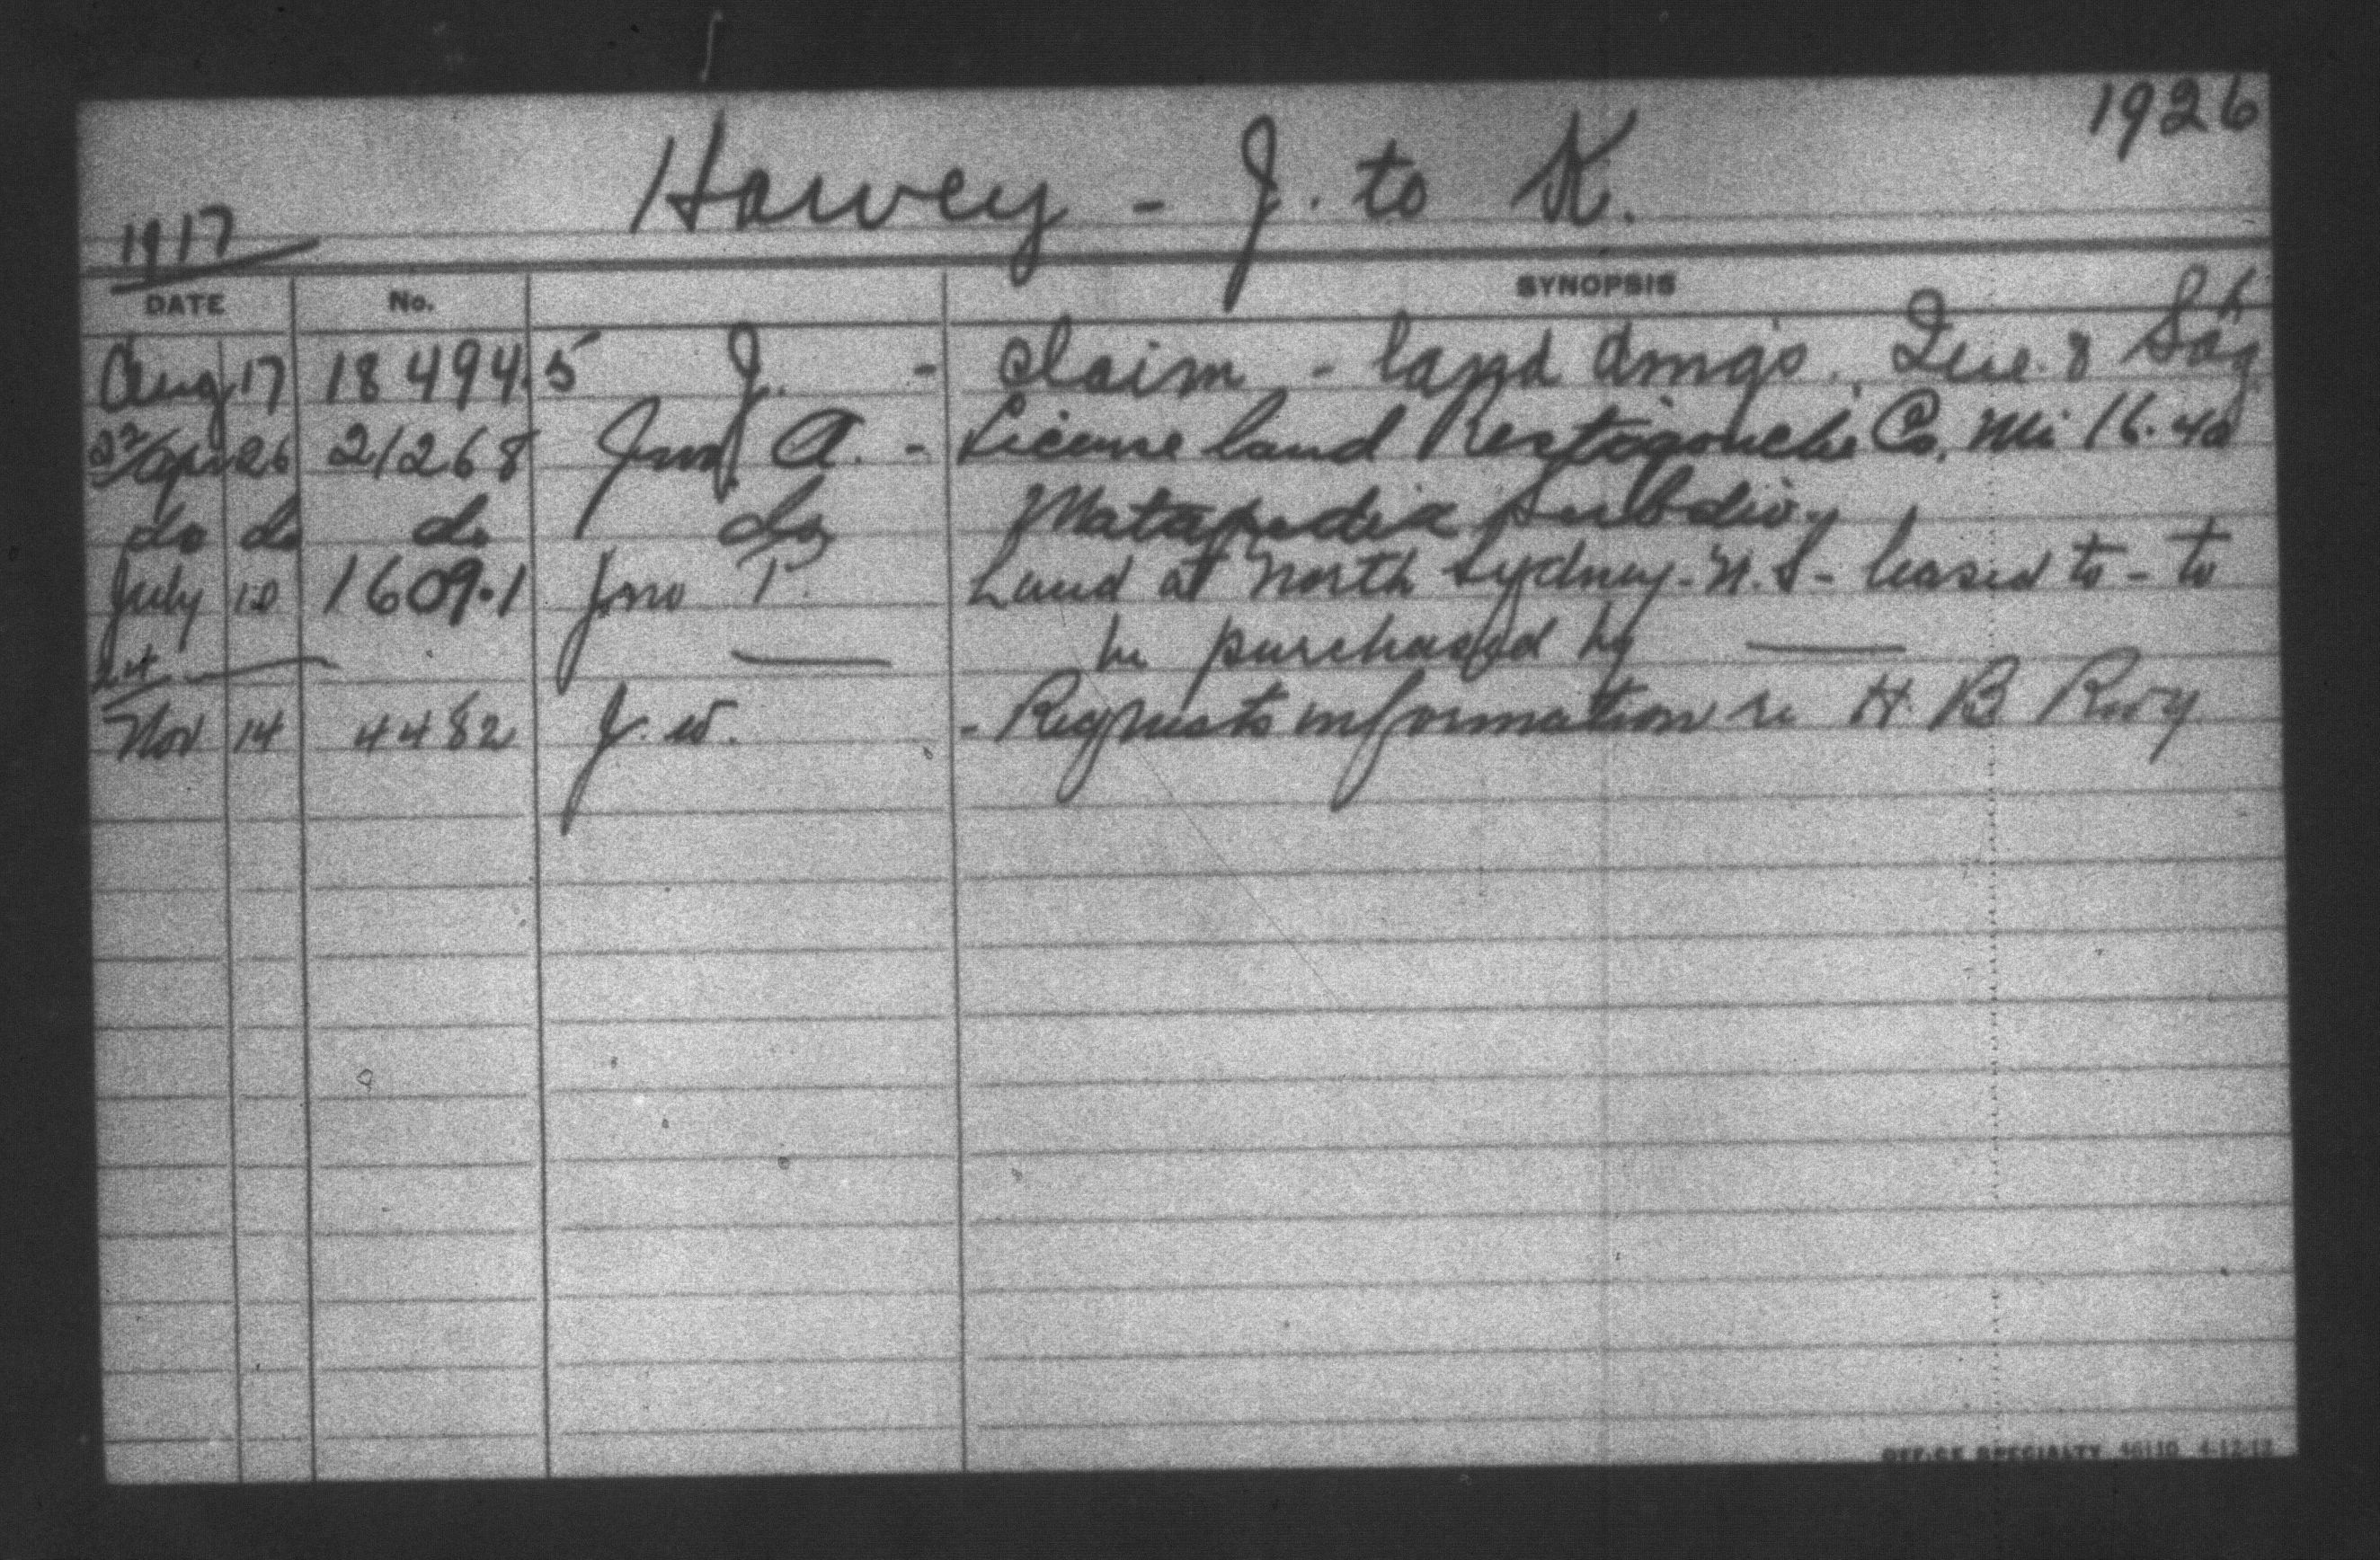 1926
Harvey - J. to K.
1917
DATE No. SYNOPSIS
Aug 17 18494.5 J. - claim - land dmgs. Que. & Sag
22 Apr 26 21268 Jno A. - License land Restigouche Co. Mi 16.40
do do do do Matapedia Subdiv.
July 10 1609.1 Jno T. Land at North Sydney - N.S - leased to - to
be purchased by
24
Nov 14 4482 J. W. - Requests information re H B Rwy
OFFICE SPECIALTY 46110 4-12-12